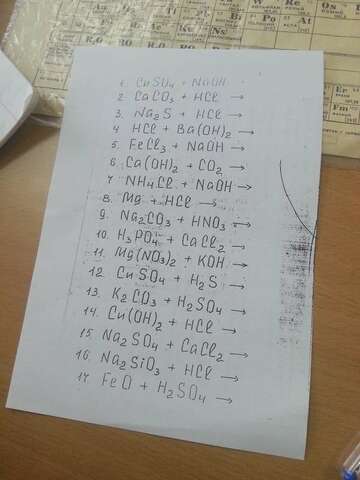 1. CuSO4 + NaOH
2 CaCO3 + HCl →
3. Na2S + HCl →
4 HCl + Ba(OH)2 →
5. FeCl3 + NaOH →
6. Ca(OH)2 + CO2 →
7. NH4Cl + NaOH →
8. Mg + HCl →
9. Na2CO3 + HNO3 →
10. H3PO4 + CaCl2 →
11. Mg(NO3)2 + KOH →
12. CuSO4 + H2S →
13. K2CO3 + H2SO4 →
14. Cu(OH)2 + HCl →
15. Na2SO4 + CaCl2 →
16. Na2SiO3 + HCl →
17. FeO + H2SO4 →